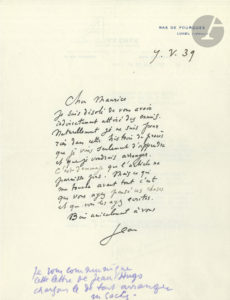 MAS DE FOURQUES
LUNEL
7. V. 39
Cher Maurice
Je suis désolé de vous avoir
indirectement attiré des ennuis.
Naturellement je ne suis pour
rien dans cette histoire de presse
que je viens seulement d'apprendre
et que je voudrais arranger.
C'est dommage que l'article ne
paraisse pas. Mais ce qui
me touche avant tout c'est
que vous ayez pensé ces choses
et que vous les ayez écrites.
Bien amicalement à vous
Jean
Je vous communique
cette lettre de Jean Hugo
de tout arranger